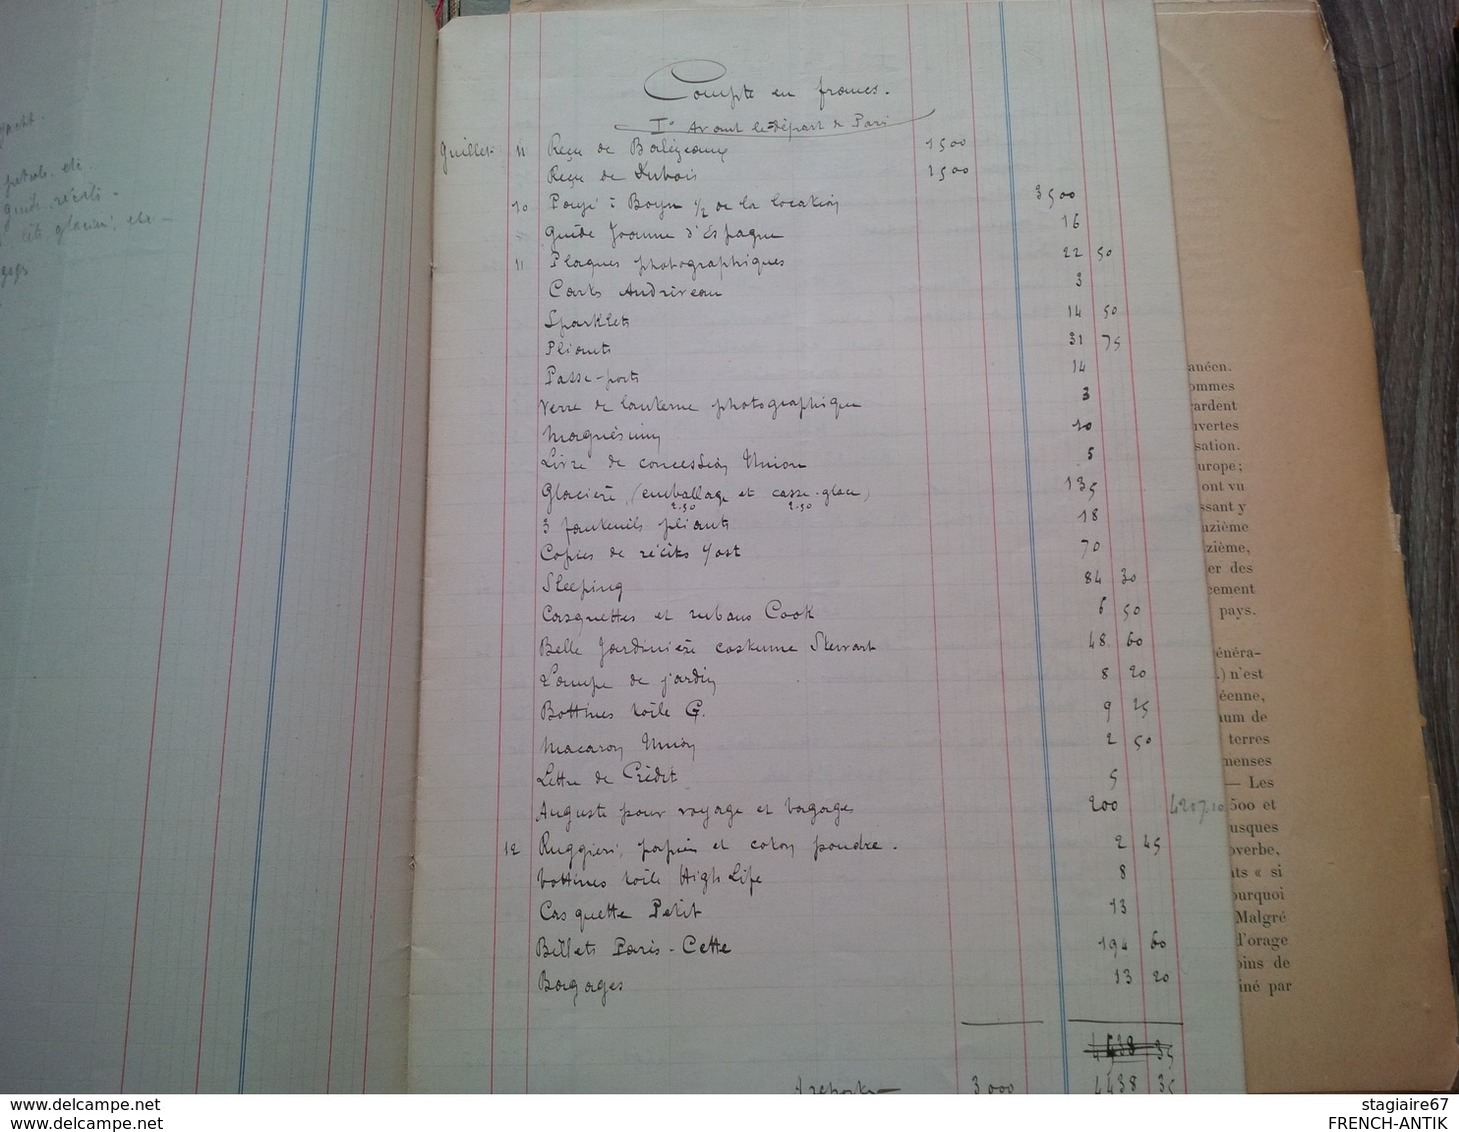 yacht.
petrole. etc.
guide. récits -
glacière, etc -
Compte en francs.
I° Avant le départ de Paris
Juillet 11 Reçu de Balézeaux 1500
Reçu de Dubois 1500
10 Payé à Boyn ½ de la location 3500
Guide Joanne d'Espagne 16
11 Plaques photographiques 22 50
Carte Andriveau 3
Sparklets 14 50
Pliants 31 75
Passe-ports 14
Verre de lanterne photographique 3
Magnésium 10
Livre de concession Union 5
Glacière (emballage et casse-glace) 135
2.50 2.50
3 fauteuils pliants 18
Copies de récits Yost 70
Sleeping 84 30
Casquettes et rubans Cook 6 50
Belle Jardinière costume Stewart 48 60
Lampe de jardin 8 20
Bottines toile G. 9 25
Macaron Union 2 50
Lettre de Crédit 5
Auguste pour voyage et bagages 200 4207.10
12 Ruggieri, papier et coton poudre. 2 45
bottines toile High Life 8
Casquette Petit 13
Billets Paris-Cette 194 60
Bagages 13 20
4538 35
A reporter 3000 4438 35
anéen.
ommes
ardent
uvertes
sation.
urope;
ont vu
ssant y
uzième
zième,
er des
cement
pays.
énéra-
.) n'est
éenne,
um de
terres
menses
— Les
500 et
usques
overbe,
ts « si
ourquoi
Malgré
d'orage
oins de
iné par
www.delcampe.net
www.delcampe.net
stagiaire67
FRENCH-ANTIK